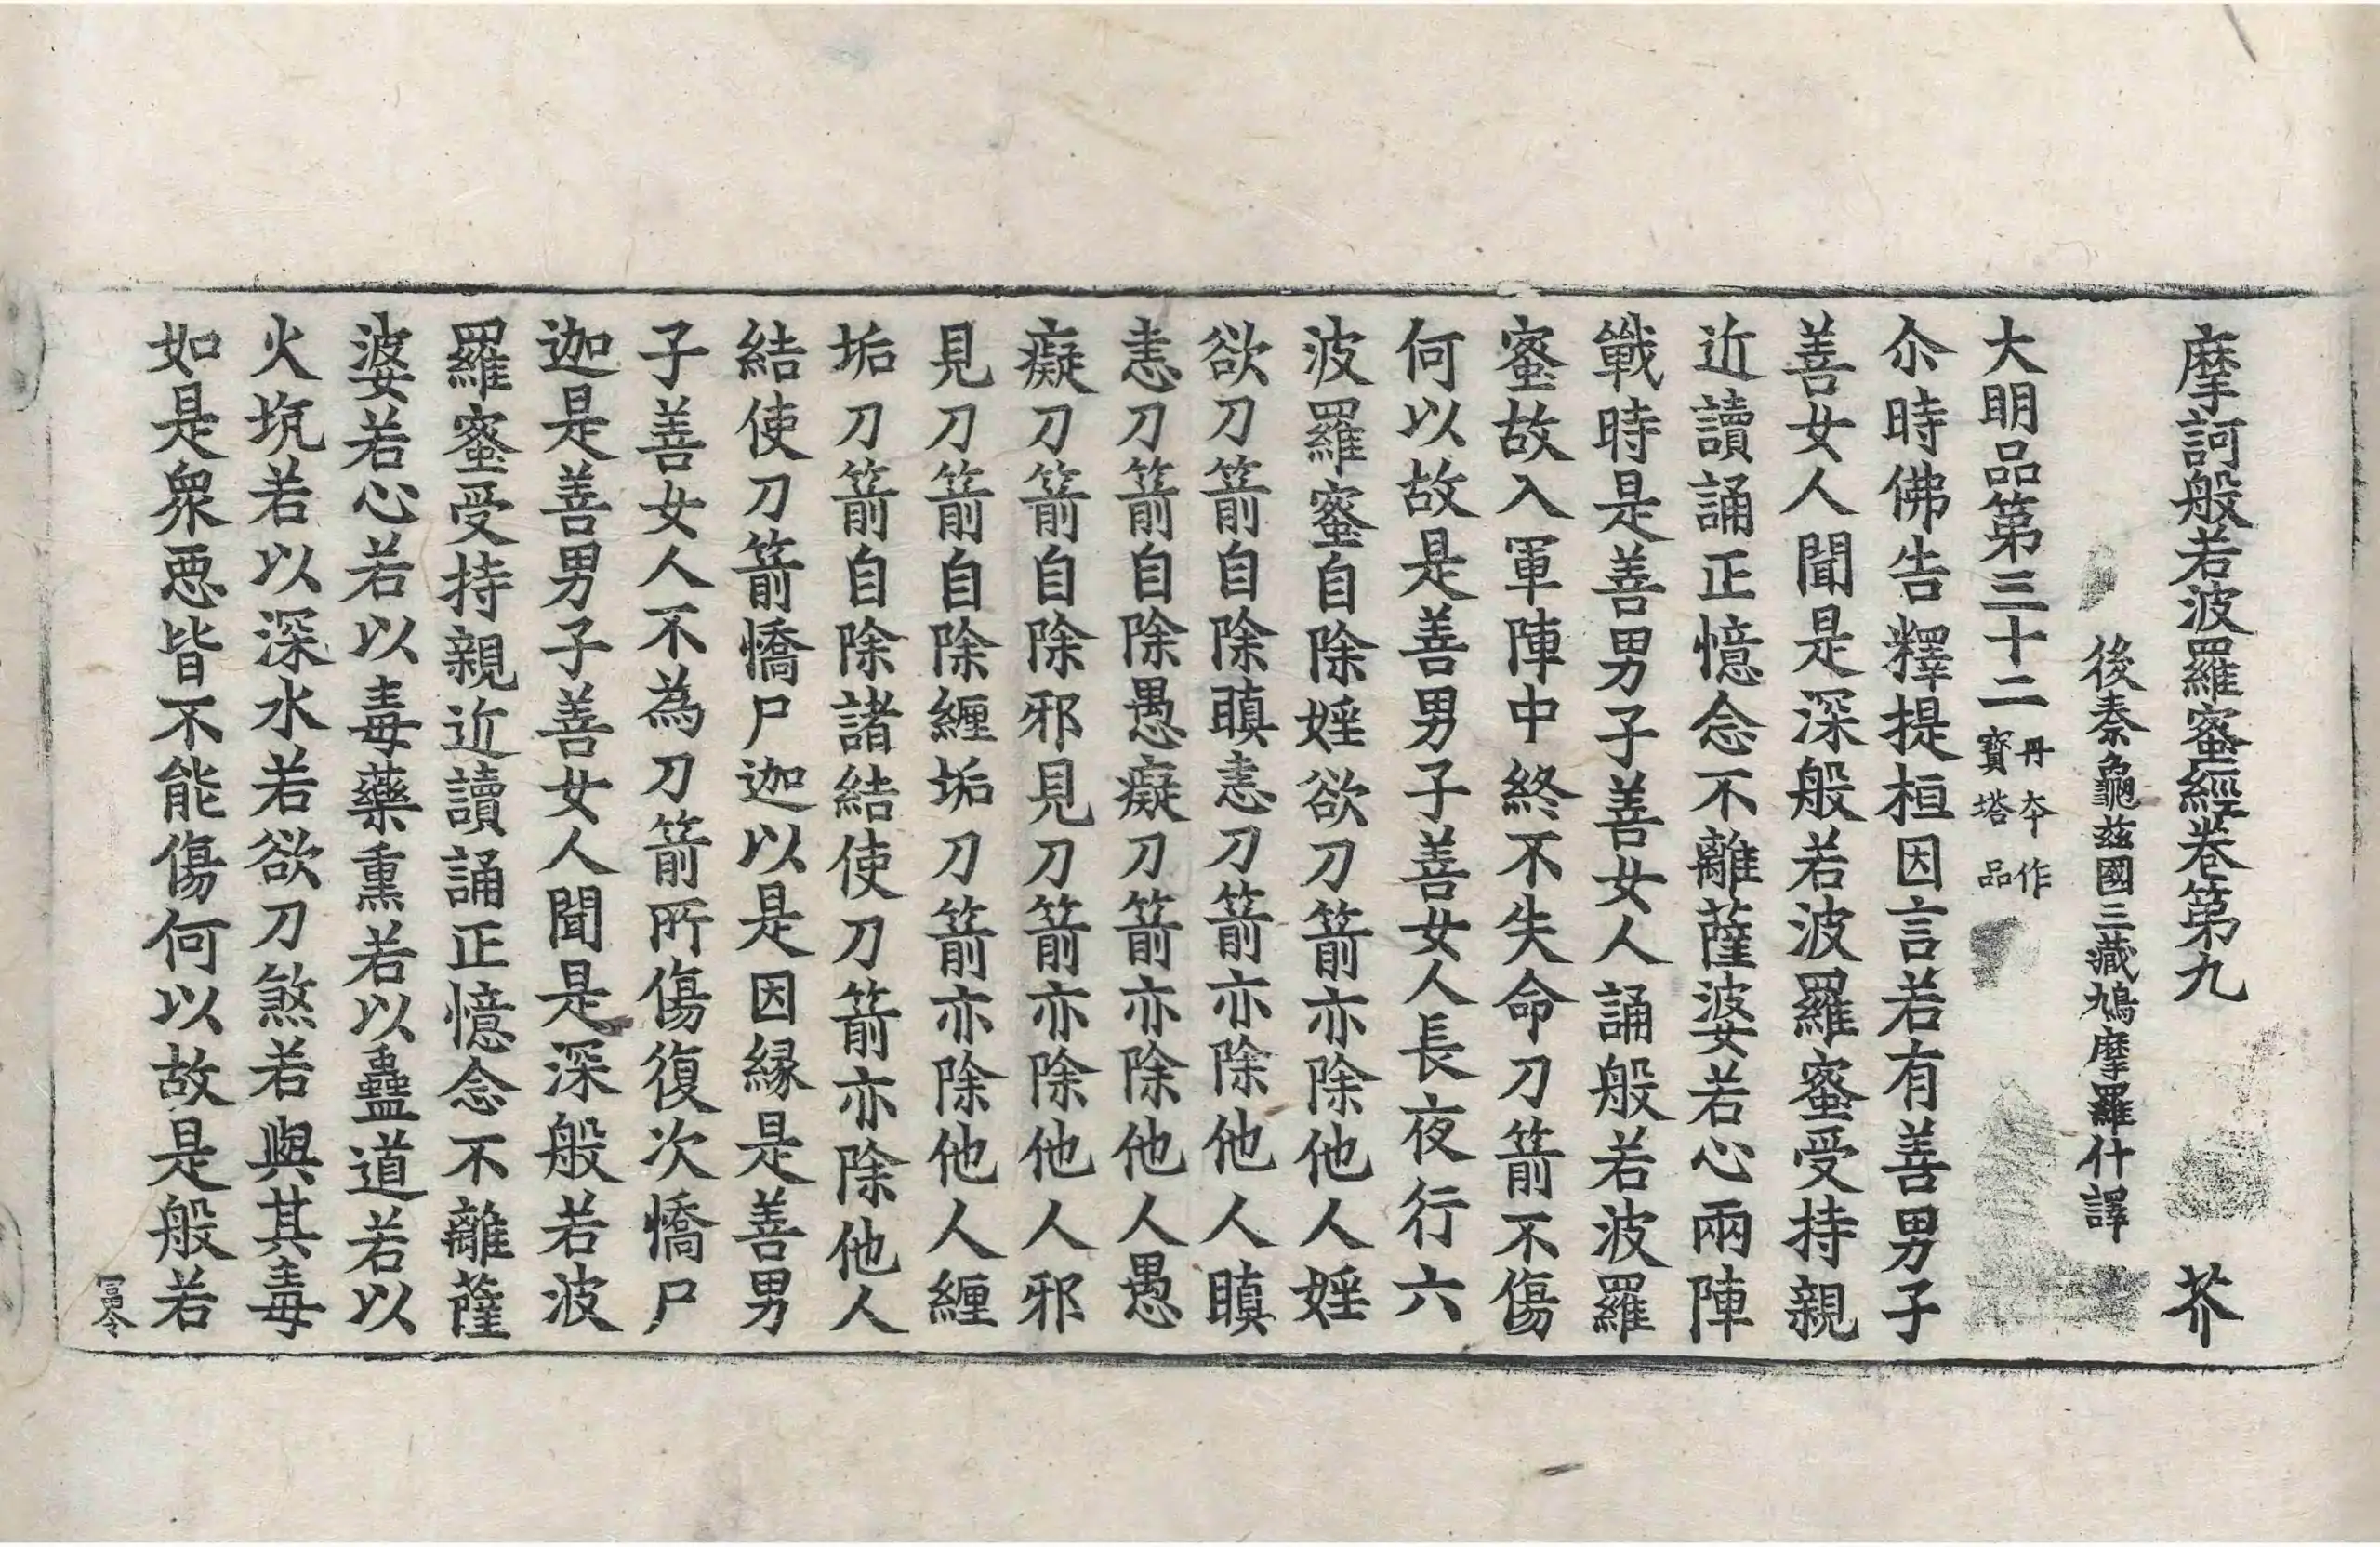 摩訶般若波羅蜜經卷第九 芥
後秦龜兹國三藏鳩摩羅什譯
大明品第三十二 丹夲作寳塔品
尒時佛告釋提桓因言若有善男子
善女人聞是深般若波羅蜜受持親
近讀誦正憶念不離薩婆若心兩陣
戰時是善男子善女人誦般若波羅
蜜故入軍陣中終不失命刀箭不傷
何以故是善男子善女人長夜行六
波羅蜜自除婬欲刀箭亦除他人婬
欲刀箭自除瞋恚刀箭亦除他人瞋
恚刀箭自除愚癡刀箭亦除他人愚
癡刀箭自除邪見刀箭亦除他人邪
見刀箭自除纏垢刀箭亦除他人纏
垢刀箭自除諸結使刀箭亦除他人
結使刀箭憍尸迦以是因縁是善男
子善女人不為刀箭所傷復次憍尸
迦是善男子善女人聞是深般若波
羅蜜受持親近讀誦正憶念不離薩
婆若心若以毒藥熏若以蠱道若以
火坑若以深水若欲刀煞若與其毒
如是衆惡皆不能傷何以故是般若
冨令